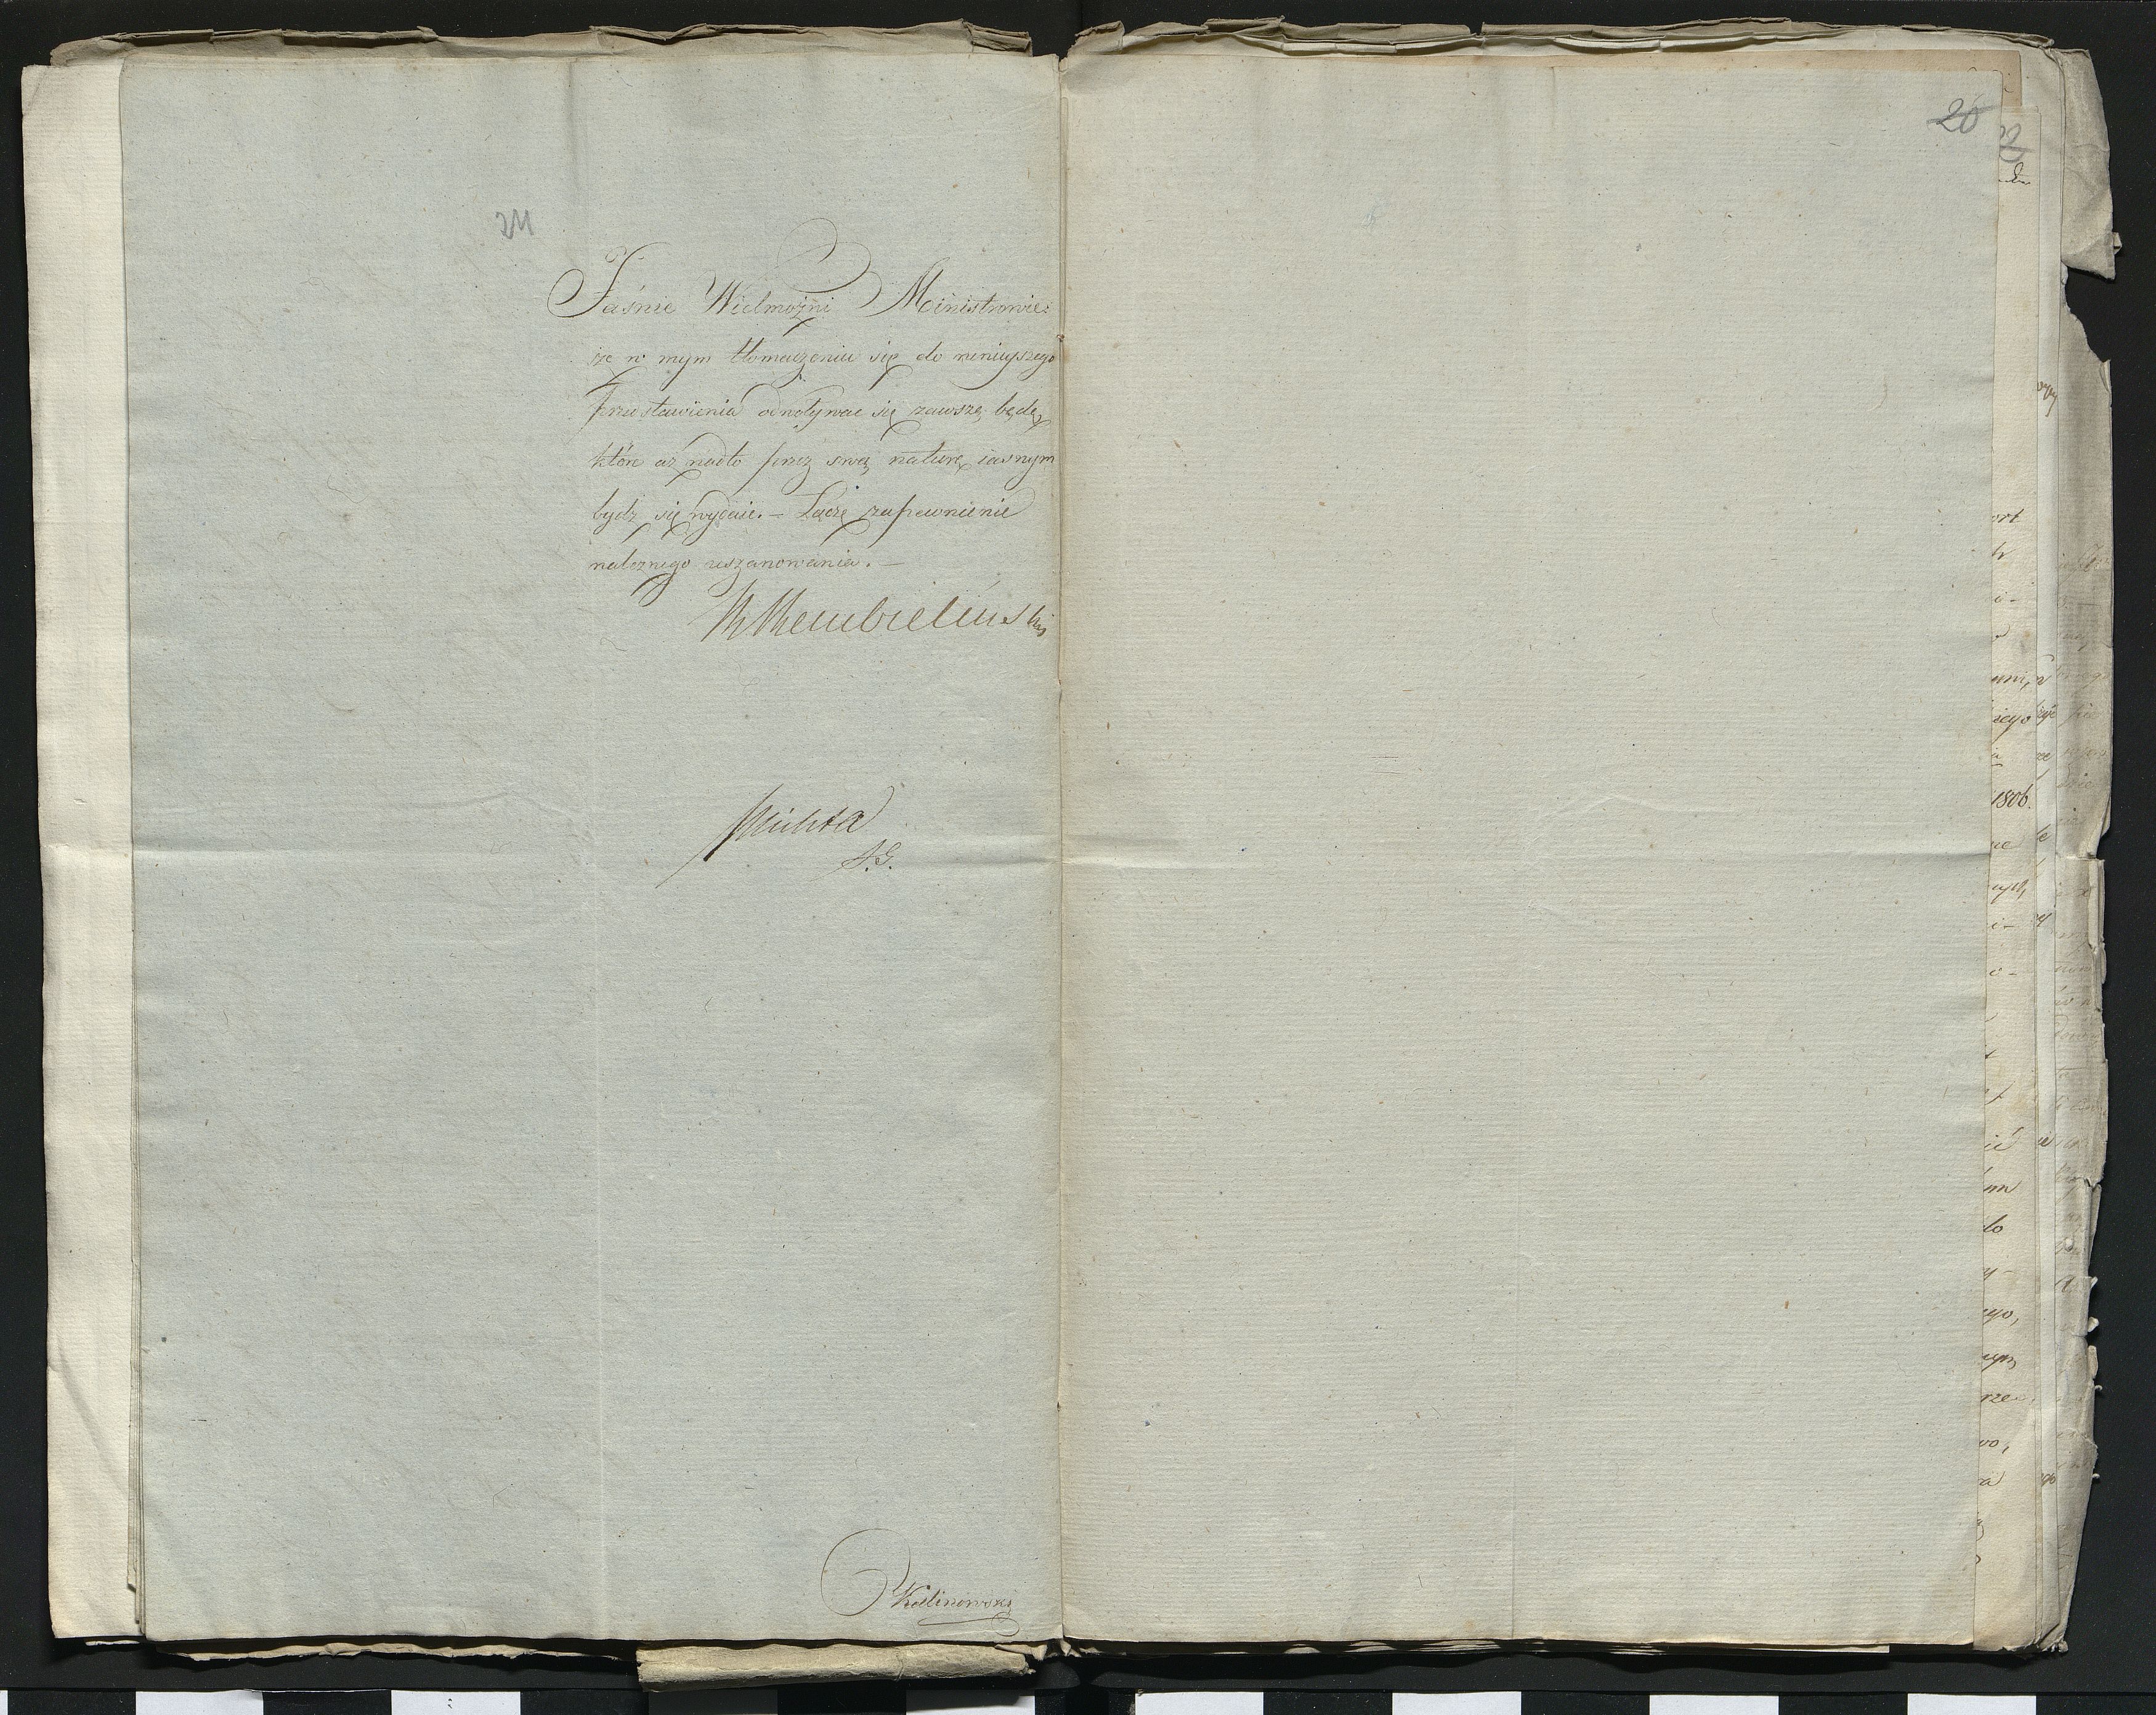 24
Jaśnie Wielmożni Ministrowie
że w mym tłomaczeniu się do ninieyszego
przedstawienia odwoływac się zawsze będę,
które aż nadto przez swą naturę iasnym
bydz się wydaie. – Łączę zapewnienie
należnego uszanowania. –
RRembielinski
Michta
S.G.
Kalinowski
26
1806.